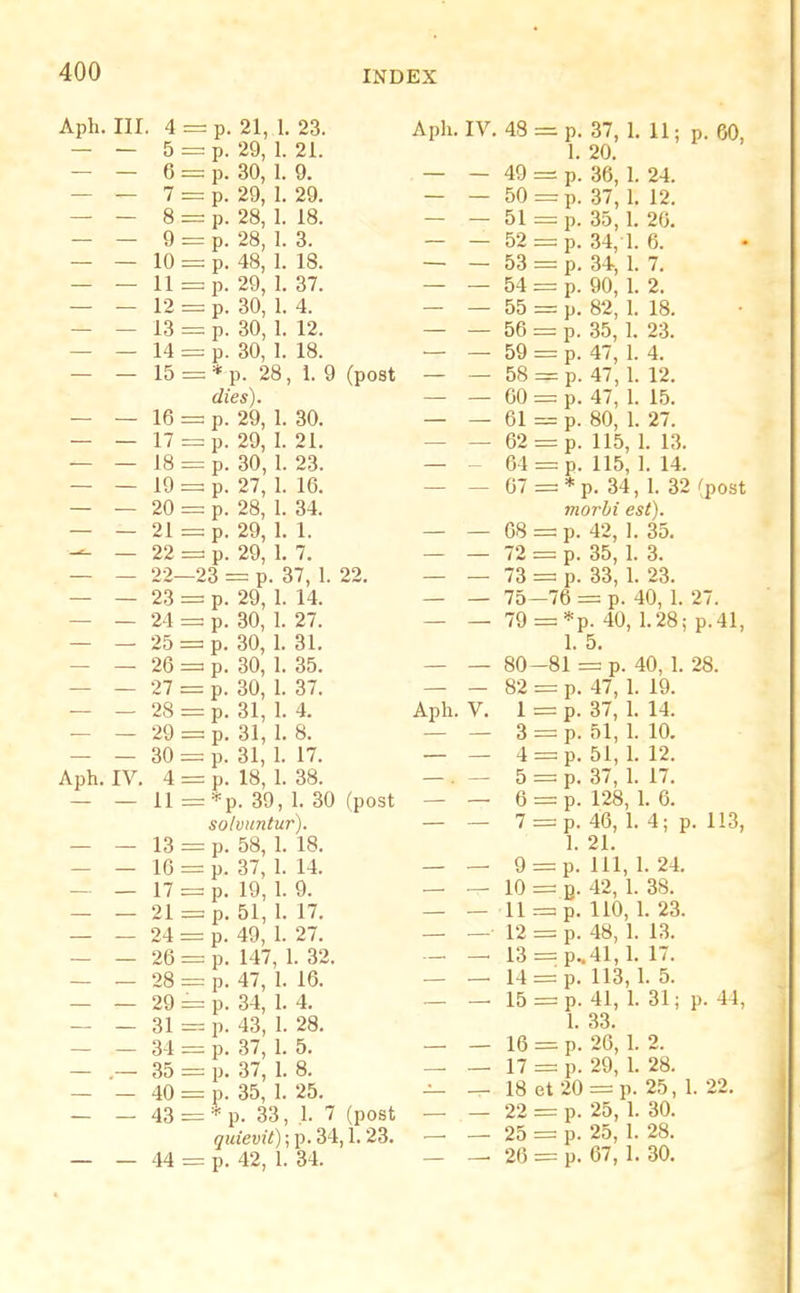 400 INDEX
Aph. III. 4 = p. 21, l. 23.
— — 5 = p. 29, l. 21.
— — 6 = p. 30, l. 9.
— — 7 = p. 29, l. 29.
— — 8 = p. 28, l. 18.
— — 9 = p. 28, l. 3.
— — 10 = p. 48, l. 18.
— — 11 = p. 29, l. 37.
— — 12 = p. 30, l. 4.
— — 13 = p. 30, l. 12.
— — 14 = p. 30, l. 18.
— — 15 = * p. 28, l. 9 (post
dies).
— — 16 = p. 29, l. 30.
— — 17 = p. 29, l. 21.
— — 18 = p. 30, l. 23.
— — 19 = p. 27, l. 16.
— — 20 = p. 28, l. 34.
— — 21 = p. 29, l. 1.
— — 22 = p. 29, l. 7.
— — 22—23 = p. 37, l. 22.
— — 23 = p. 29, l. 14.
— — 24 = p. 30, l. 27.
— — 25 = p. 30, l. 31.
— — 26 = p. 30, l. 35.
— — 27 = p. 30, l. 37.
— — 28 = p. 31, l. 4.
— — 29 = p. 31, l. 8.
— — 30 = p. 31, l. 17.
Aph. IV. 4 = p. 18, l. 38.
— — 11 = *p. 39, l. 30 (post
solvuntur).
— — 13 = p. 58, l. 18.
— — 16 = p. 37, l. 14.
— — 17 = p. 19, l. 9.
— — 21 = p. 51, l. 17.
— — 24 = p. 49, l. 27.
— — 26 = p. 147, l. 32.
— — 28 = p. 47, l. 16.
— — 29 = p. 34, l. 4.
— — 31 = p. 43, l. 28.
— — 34 = p. 37, l. 5.
— — 35 = p. 37, l. 8.
— — 40 = p. 35, l. 25.
— — 43 = * p. 33, l. 7 (post
quievit); p. 34, l. 23.
— — 44 = p. 42, l. 34.
Aph. IV. 48 = p. 37, l. 11; p. 60,
l. 20.
— — 49 = p. 36, l. 24.
— — 50 = p. 37, l. 12.
— — 51 = p. 35, l. 26.
— — 52 = p. 34, l. 6.
— — 53 = p. 34, l. 7.
— — 54 = p. 90, l. 2.
— — 55 = p. 82, l. 18.
— — 56 = p. 35, l. 23.
— — 59 = p. 47, l. 4.
— — 58 = p. 47, l. 12.
— — 60 = p. 47, l. 15.
— — 61 = p. 80, l. 27.
— — 62 = p. 115, l. 13.
— — 64 = p. 115, l. 14.
— — 67 = * p. 34, l. 32 (post
morbi est).
— — 68 = p. 42, l. 35.
— — 72 = p. 35, l. 3.
— — 73 = p. 33, l. 23.
— — 75—76 = p. 40, l. 27.
— — 79 = *p. 40, l. 28; p. 41,
l. 5.
— — 80—81 = p. 40, l. 28.
— — 82 = p. 47, l. 19.
Aph. V. 1 = p. 37, l. 14.
— — 3 = p. 51, l. 10.
— — 4 = p. 51, l. 12.
— — 5 = p. 37, l. 17.
— — 6 = p. 128, l. 6.
— — 7 = p. 46, l. 4; p. 113,
l. 21.
— — 9 = p. 111, l. 24.
— — 10 = p. 42, l. 38.
— — 11 = p. 110, l. 23.
— — 12 = p. 48, l. 13.
— — 13 = p. 41, l. 17.
— — 14 = p. 113, l. 5.
— — 15 = p. 41, l. 31; p. 44,
l. 33.
— — 16 = p. 26, l. 2.
— — 17 = p. 29, l. 28.
— — 18 et 20 = p. 25, l. 22.
— — 22 = p. 25, l. 30.
— — 25 = p. 25, l. 28.
— — 26 = p. 67, l. 30.